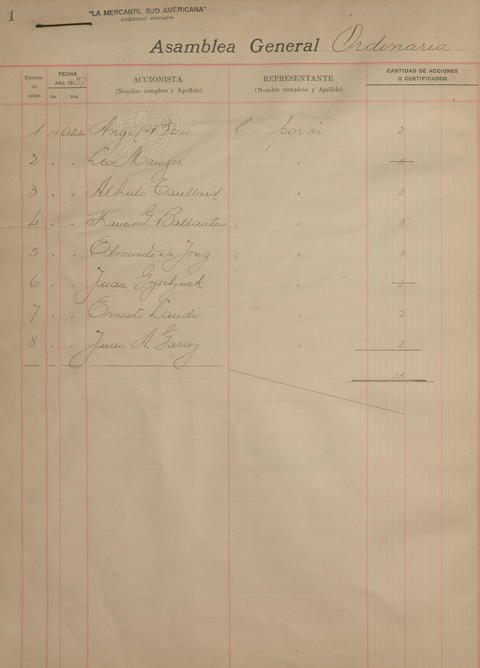 1
"LA MERCANTIL SUD AMERICANA"
SOCIEDAD ANONIMA
Asamblea General Ordinaria
Número de orden
FECHA
Año 1937
Día Mes
ACCIONISTA
(Nombre completo y Apellido)
REPRESENTANTE
(Nombre completo y Apellido)
CANTIDAD DE ACCIONES
O CERTIFICADOS
1 19 Octubre Angel por si 2
2 " " Leo "
3 " " Alfredo "
4 " " Francis G. Ballantine "
5 " " Edmundo de Jong "
6 " " Juan "
7 " " Ernesto Landi " 2
8 " " Juan A. Garay " 2
15